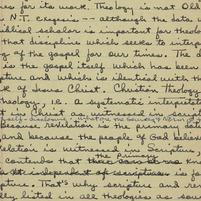 es for its work. Theology is not Old
N.T. exegesis -- although the data
blical scholar is important for theolo
that discipline which seeks to interp
y of the gospel for our times. The d
the gospel itself which has been
pture and which is identical with th
k of Jesus Christ. Christian Theology
heology, i.e. A systematic interpretat
t in Christ as witnessed in script
because revelation is the primary dat
and because the people of God believe
elation is witnessed in Scripture.
the primary
contends that kno
is independent of scriptures is
pture. That's why scripture and re
lly listed in all theologies as sour